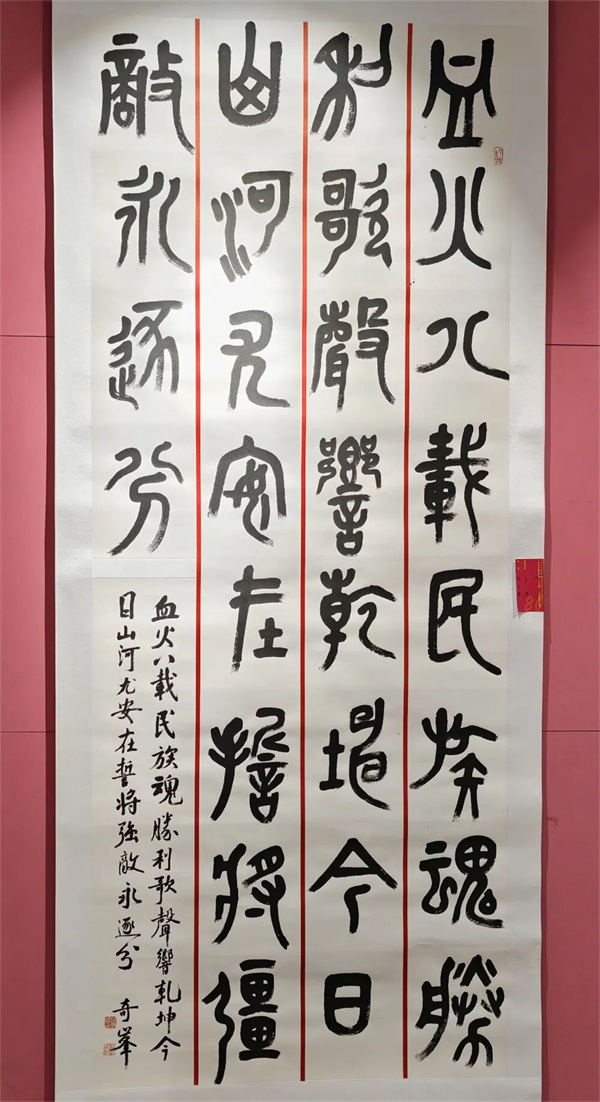 血火八載民族魂勝
利歌聲響乾坤今日
山河尤安在誓將彊
敵永逐分
血火八載民族魂勝利歌聲響乾坤今
日山河尤安在誓將強敵永逐分
奇峯